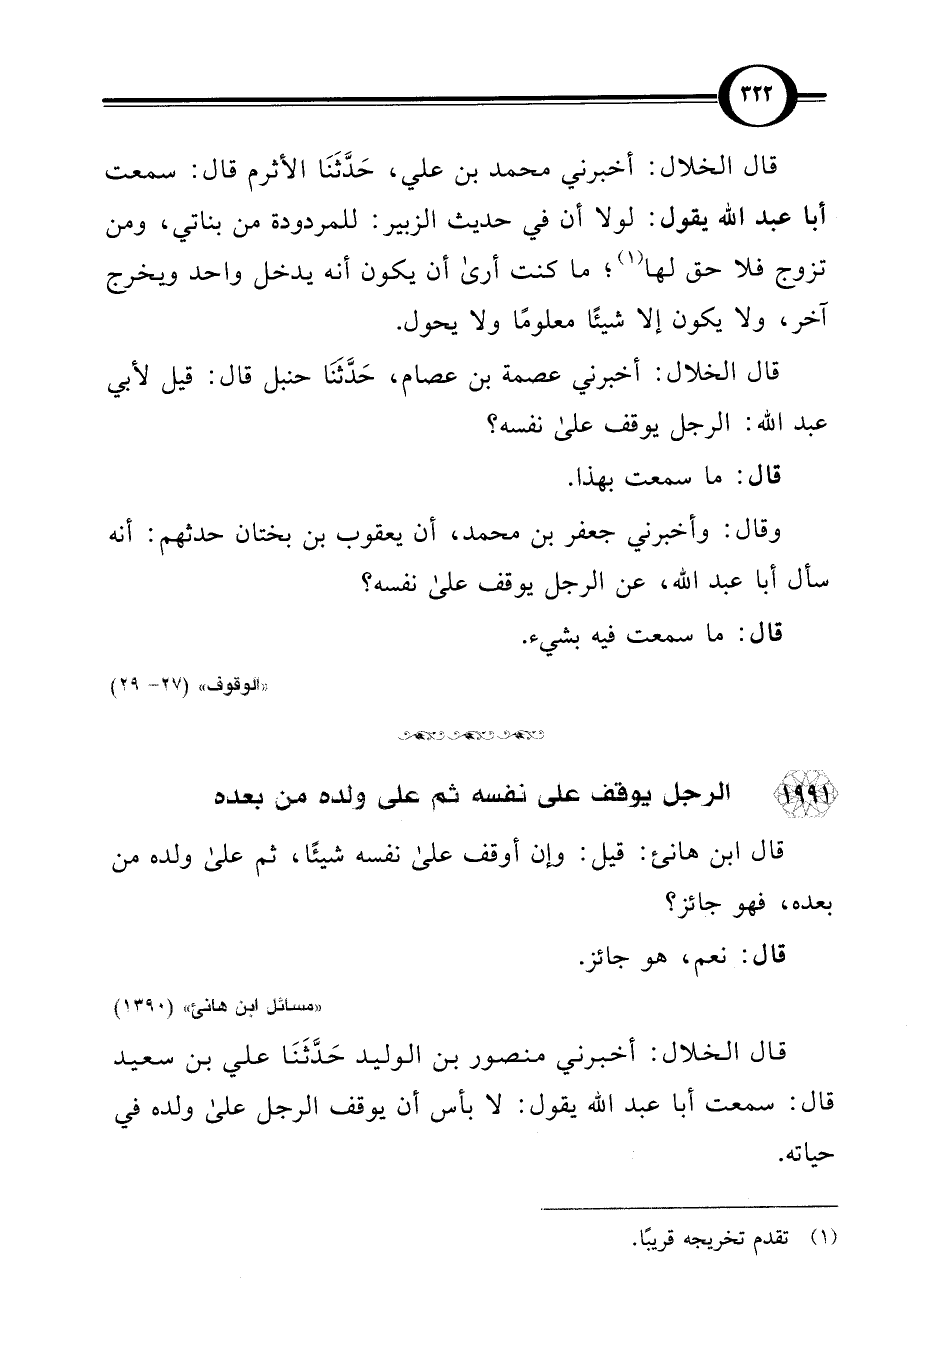 ٣٢٢
قال الخلال: أخبرني محمد بن علي، حَدَّثَنَا الأثرم قال: سمعت
أبا عبد الله يقول: لولا أن في حديث الزبير: للمردودة من بناتي، ومن
تزوج فلا حق لها(١)؛ ما كنت أرىٰ أن يكون أنه يدخل واحد ويخرج
آخر، ولا يكون إلا شيئًا معلومًا ولا يحول.
قال الخلال: أخبرني عصمة بن عصام، حَدَّثَنَا حنبل قال: قيل لأبي
عبد الله: الرجل يوقف علىٰ نفسه؟
قال: ما سمعت بهذا.
وقال: وأخبرني جعفر بن محمد، أن يعقوب بن بختان حدثهم: أنه
سأل أبا عبد الله، عن الرجل يوقف علىٰ نفسه؟
قال: ما سمعت فيه بشيء.
«الوقوف» (٢٧- ٢٩)
١٩٩١ الرجل يوقف على نفسه ثم على ولده من بعده
قال ابن هانئ: قيل: وإن أوقف علىٰ نفسه شيئًا، ثم علىٰ ولده من
بعده، فهو جائز؟
قال: نعم، هو جائز.
«مسائل ابن هانئ» (١٣٩٠)
قال الخلال: أخبرني منصور بن الوليد حَدَّثَنَا علي بن سعيد
قال: سمعت أبا عبد الله يقول: لا بأس أن يوقف الرجل علىٰ ولده في
حياته.
(١) تقدم تخريجه قريبًا.